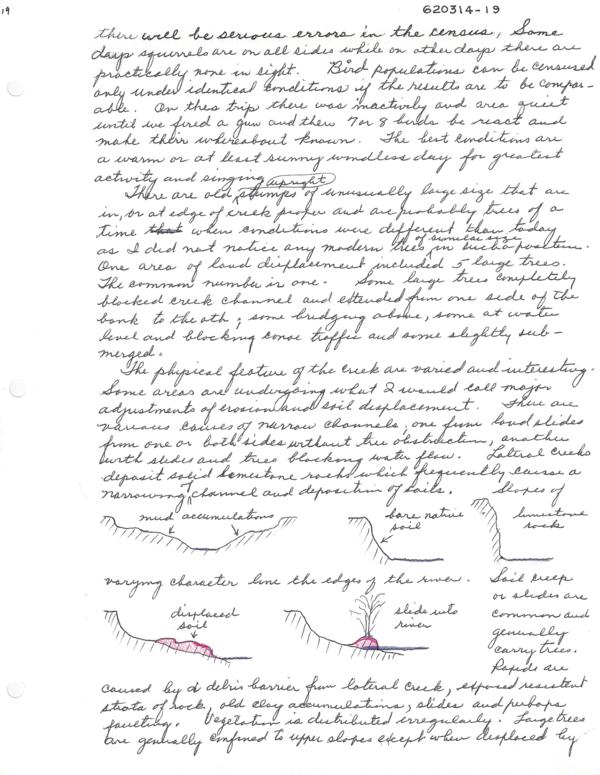 19
620314-19
there will be serious errors in the census, Some
days squirrels are on all sides while on other days there are
practically none in sight. Bird populations can be censused
only under identical conditions if the results are to be compar-
able. On this trip there was inactivity and area quiet
until we fired a gun and then 7 or 8 birds be react and
make their whereabout known. The best conditions are
a warm or at least sunny windless day for greatest
activity and singing.
upright
There are old, stumps of unusually large size that are
in, or at edge of creek proper and are probably trees of a
time that when conditions were different than today
of similar size
as I did not notice any modern trees in such a position.
One area of land displacement included 5 large trees.
The common number is one. Some large trees completely
blocked creek channel and extended from one side of the
bank to the oth; some bridging above, some at water
level and blocking canoe traffic and some slightly sub-
merged.
The physical feature of the creek are varied and interesting.
Some areas are undergoing what I would call major
adjustments of erosion and soil displacement. There are
various causes of narrow channels, one from land slides
from one or both sides without tree obstruction, another
with slides and trees blocking water flow. Lateral creeks
deposit solid limestone rocks which frequently cause a
narrowing of channel and deposition of soils. Slopes of
mud accumulations
bare native
soil
limestone
rock
varying character line the edges of the river. Soil creep
or slides are
common and
genually
carry trees.
Rapids are
displaced
soil
slide into
river
caused by d debris barrier from lateral creek, exposed resistent
strata of rock, old clay accumulations, slides and perhaps
faulting. Vegetation is distributed irregularly. Large trees
are generally confined to upper slopes except when displaced by